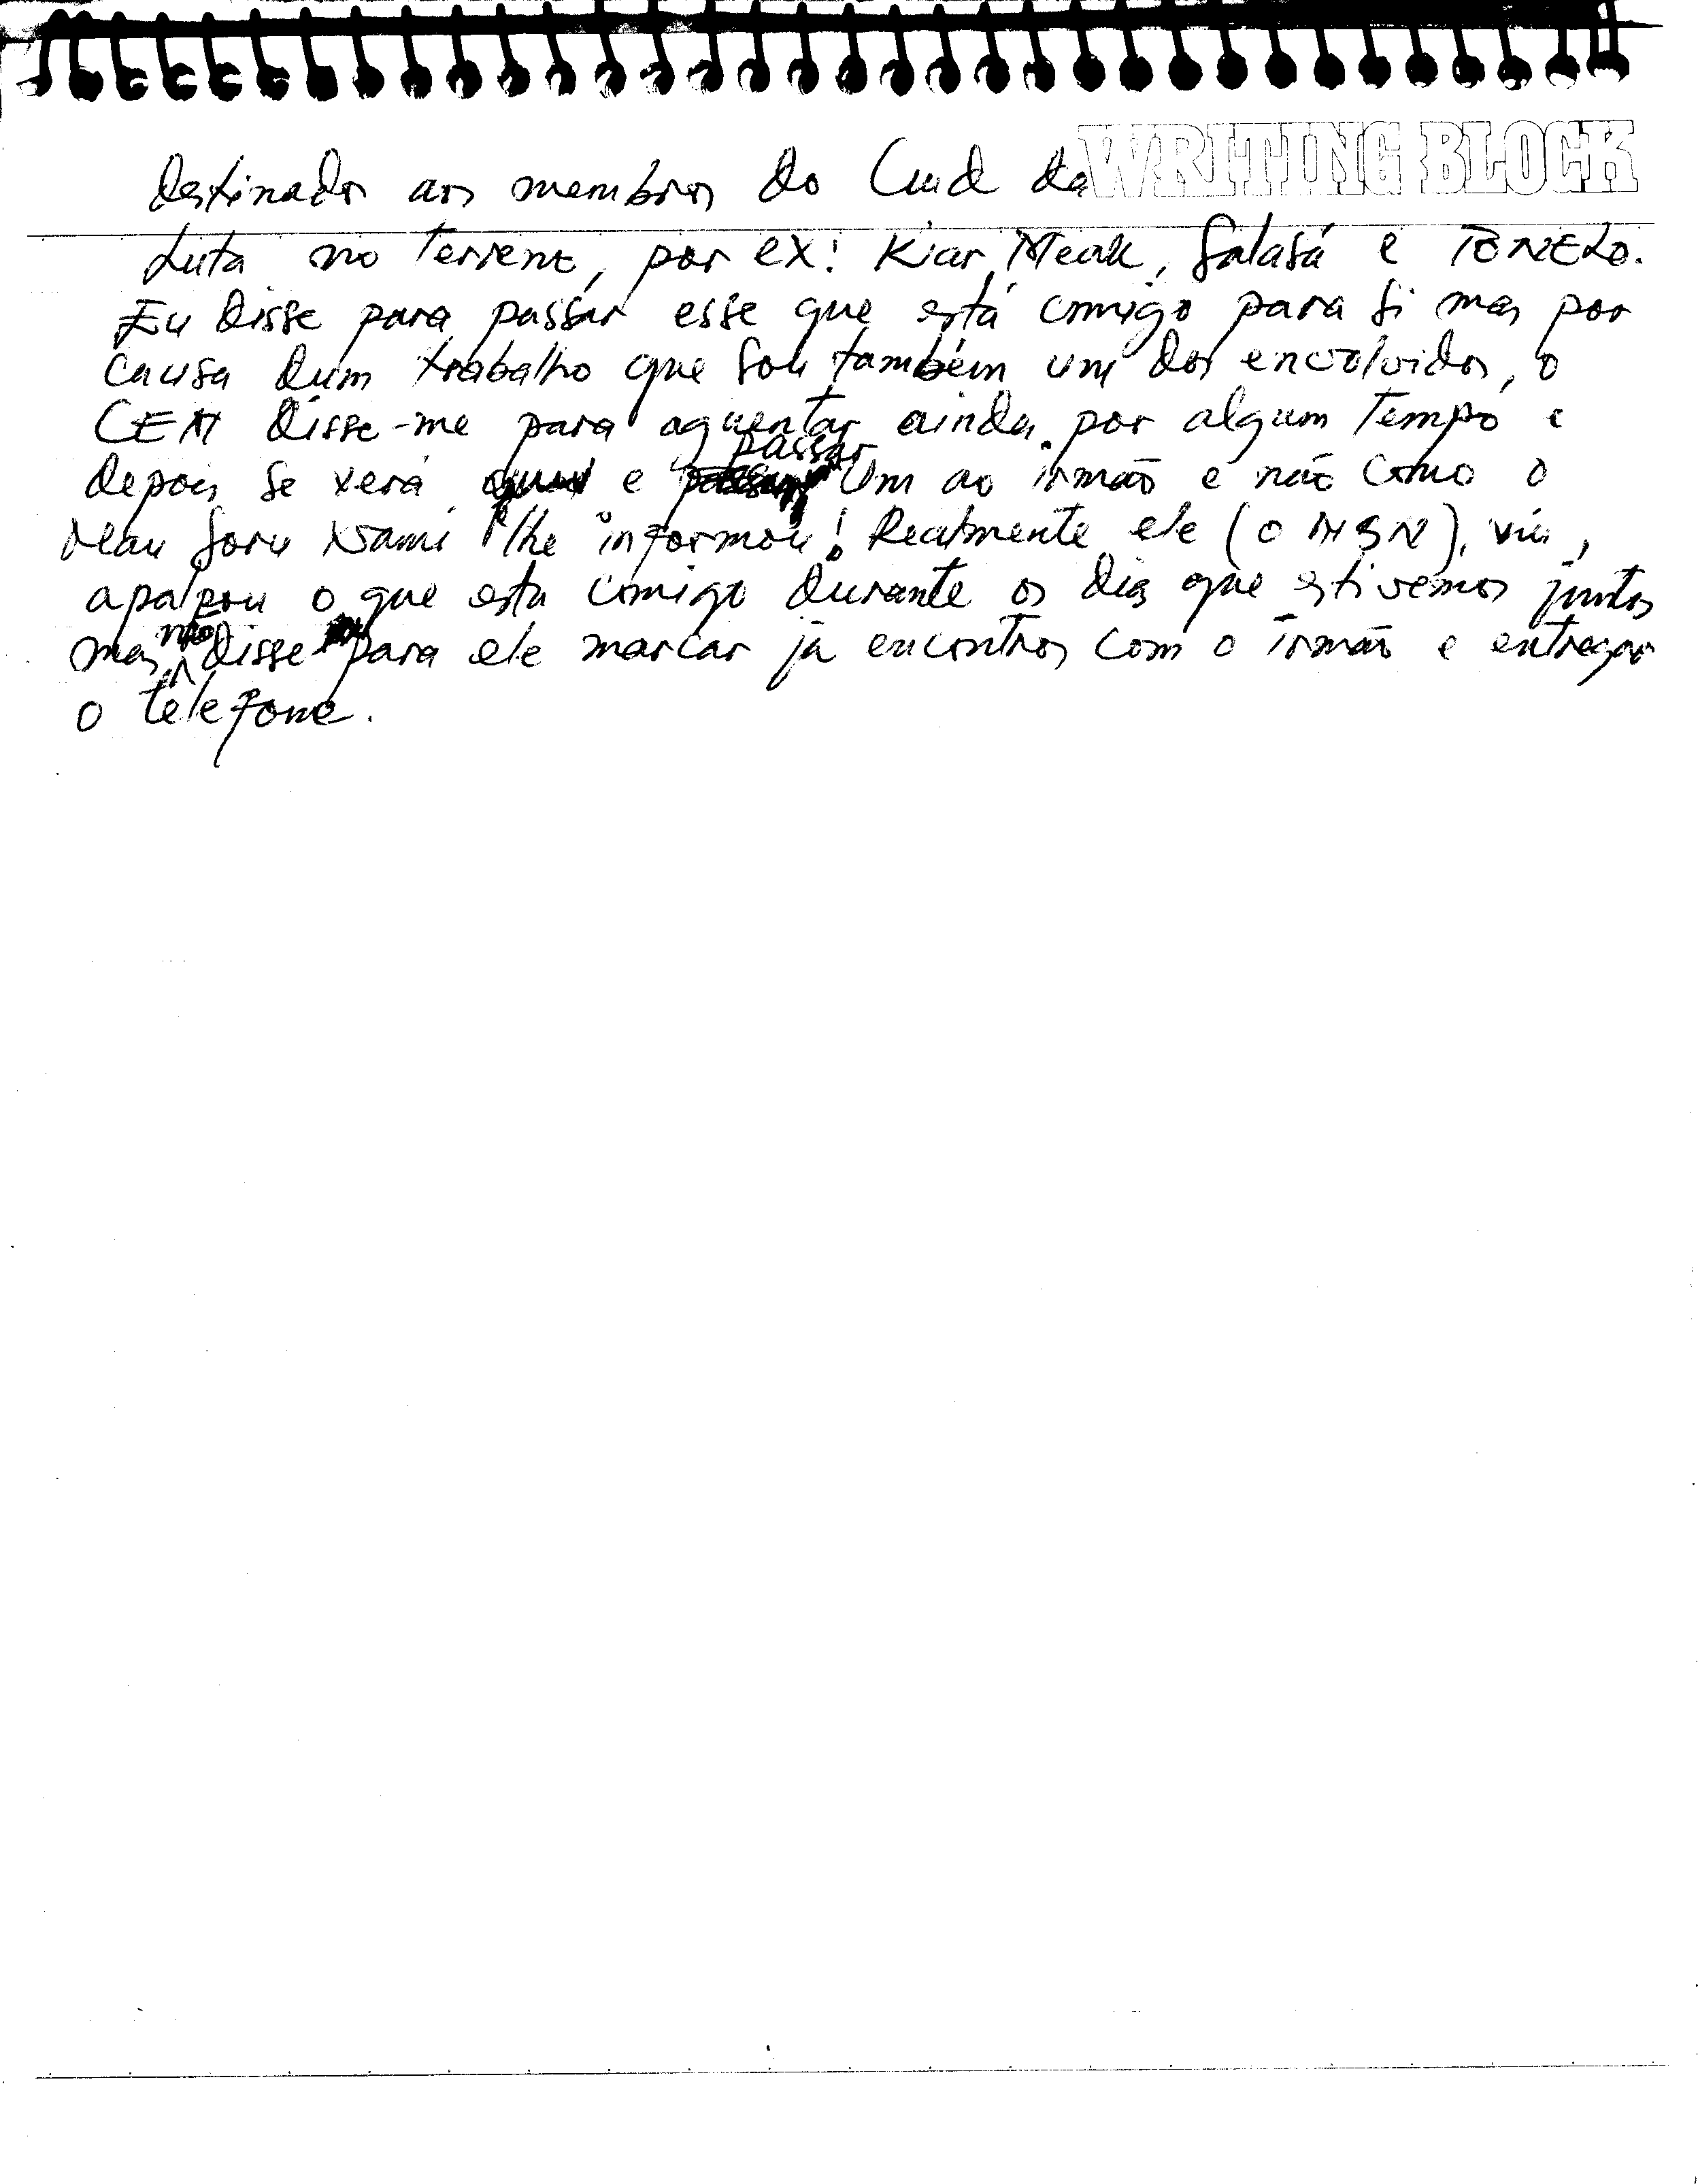 WRITING BLOCK
destinados aos membros do Cmd da
Luta no terreno, por ex: Kiar Meak, Salasá e TONELO.
Eu disse para passar esse que está comigo para si mas por
causa dum trabalho que sou também um dos envolvidos, o
CEM disse-me para aguentar ainda por algum tempo e
depois se verá e passar um ao irmão e não como o
Mau Soru Nami lhe informou! Realmente ele (o MSN), viu,
apalpou o que esta comigo durante os dias que estivemos juntos
mas não disse para ele marcar já encontros com o irmão e entregar
o telefone.